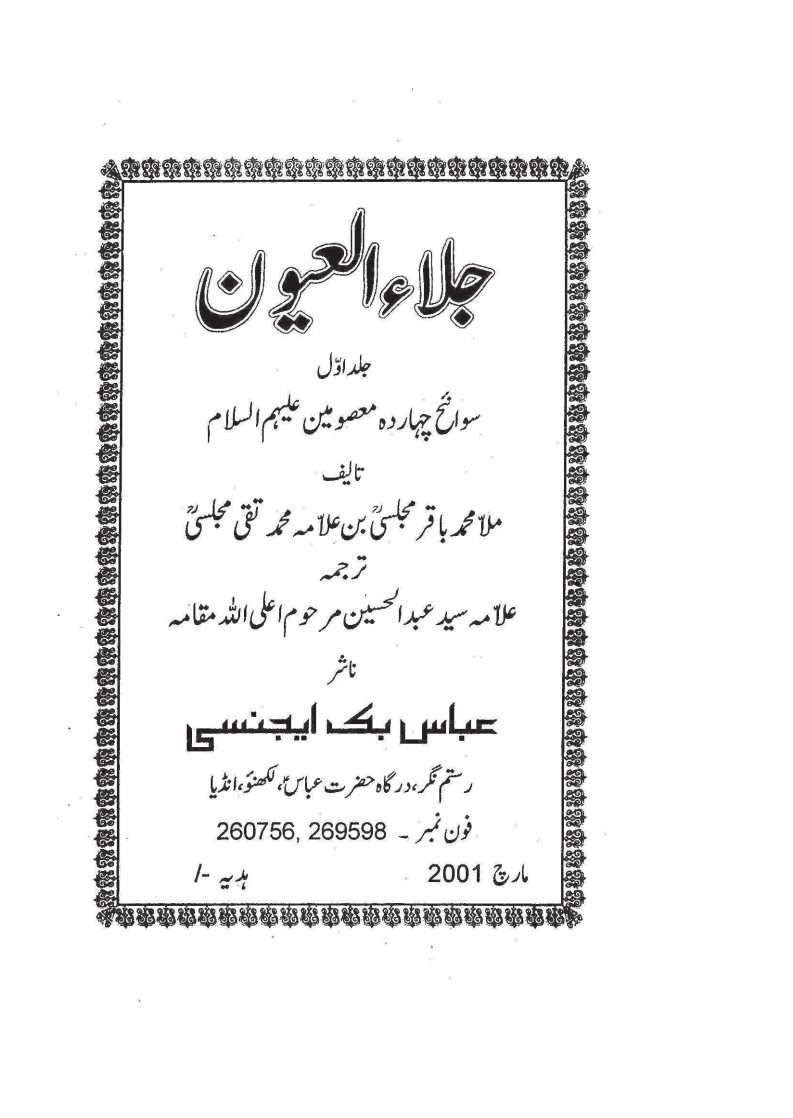 جلاء العیون
جلد اوّل
سوانح چہاردہ معصومین علیہم السلام
تالیف
ملا محمد باقر مجلسیؒ بن علامہ محمد تقی مجلسیؒ
ترجمہ
علامہ سید عبدالحسین مرحوم اعلی اللہ مقامہ
ناشر
عباس بک ایجنسی
رستم نگر، درگاہ حضرت عباسؑ، لکھنؤ، انڈیا
فون نمبر ۔ 269598 ,260756
مارچ 2001 ہدیہ -/